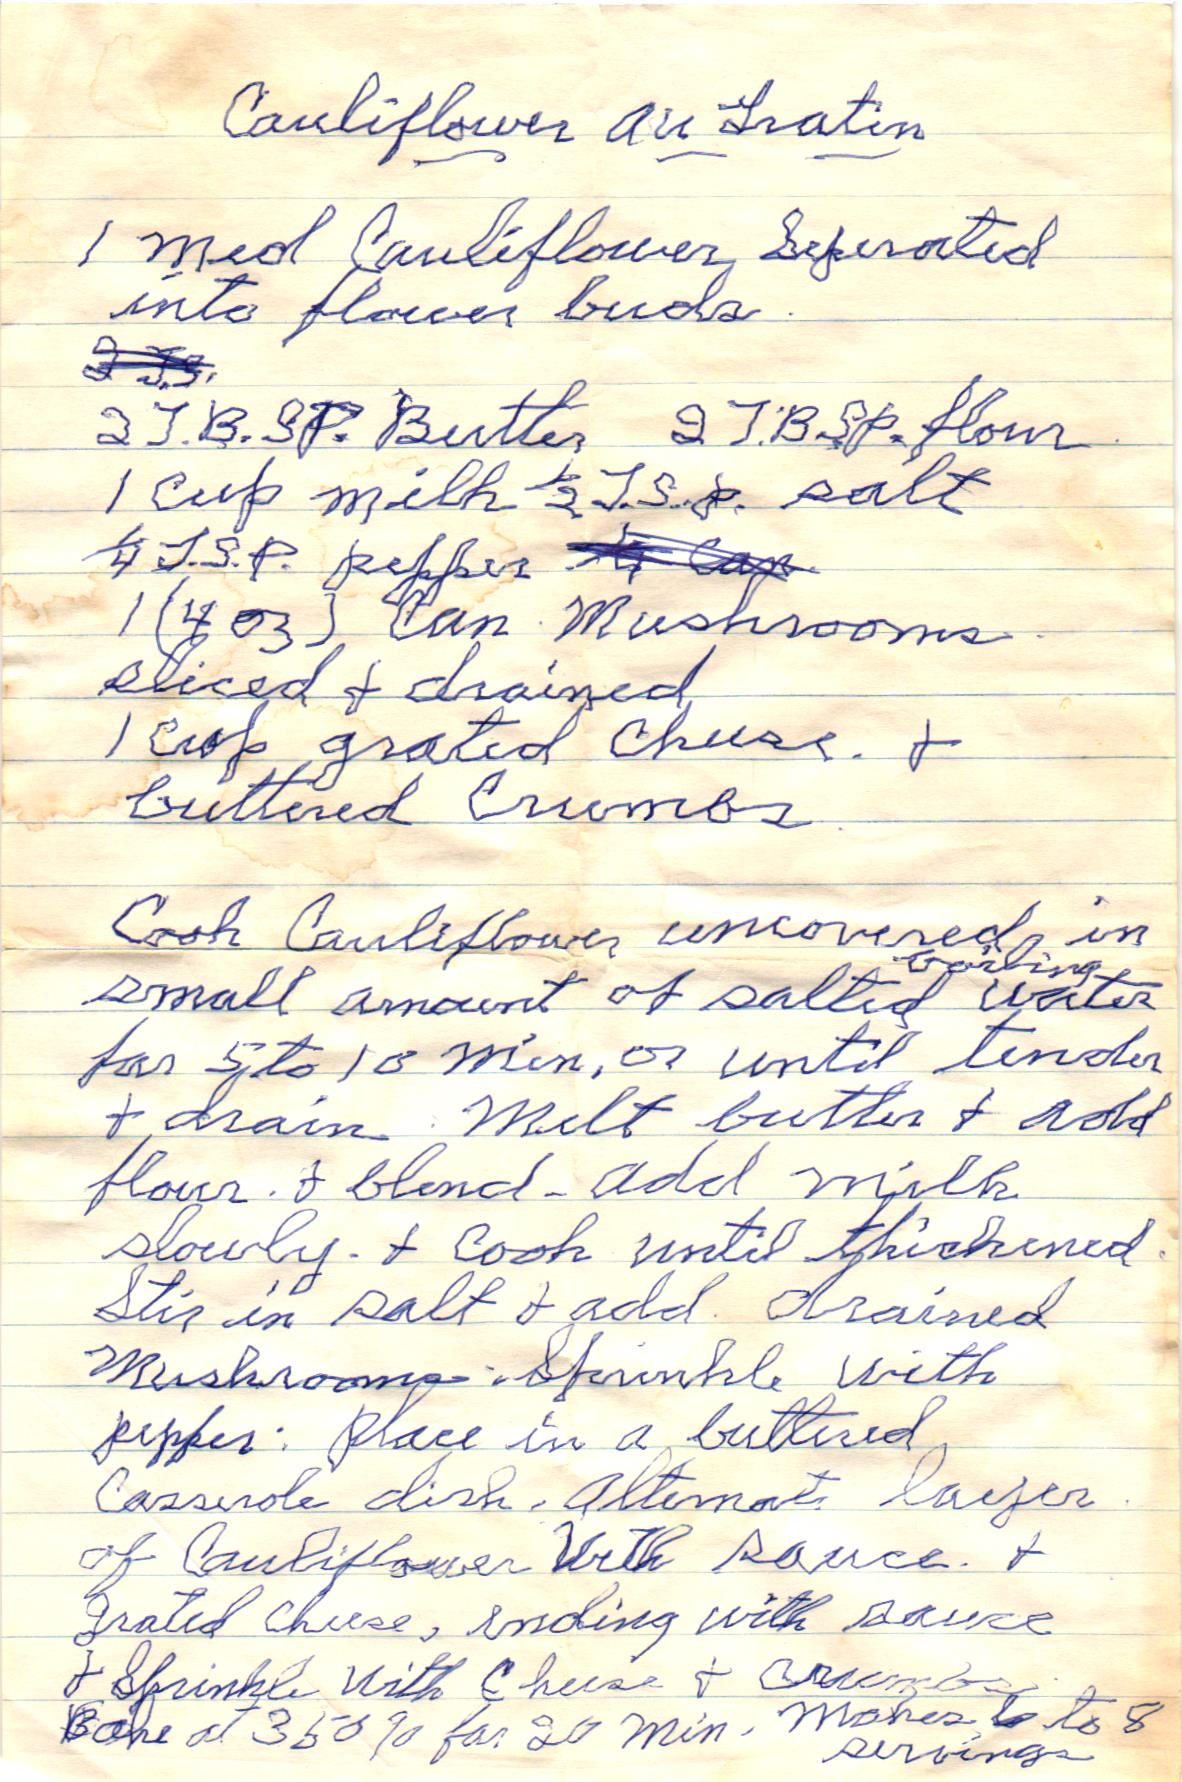 Cauliflower au Gratin
1 med Cauliflower, Seperated
into flower buds.
2 T.B.SP. Butter 2 T.B.SP. flour
1 cup milk ½ T.S.p. salt
¼ T.S.P. pepper
1 (4 oz) Can Mushrooms
sliced + drained
1 cup grated Cheese. +
buttered Crumbs
Cook Cauliflower uncovered, in
boiling
small amount of salted water
for 5 to 10 Min, or until tender
+ drain. Melt butter + add
flour. + blend - add milk
slowly. + Cook until thickened.
Stir in salt + add. drained
Mushrooms. Sprinkle with
pepper. Place in a buttered
Casserole dish. Alternate layer
of Cauliflower With sauce. +
grated Cheese, ending with sauce
+ Sprinkle With Cheese + Crumbs.
Bake at 350% for 20 Min. Makes 6 to 8
servings